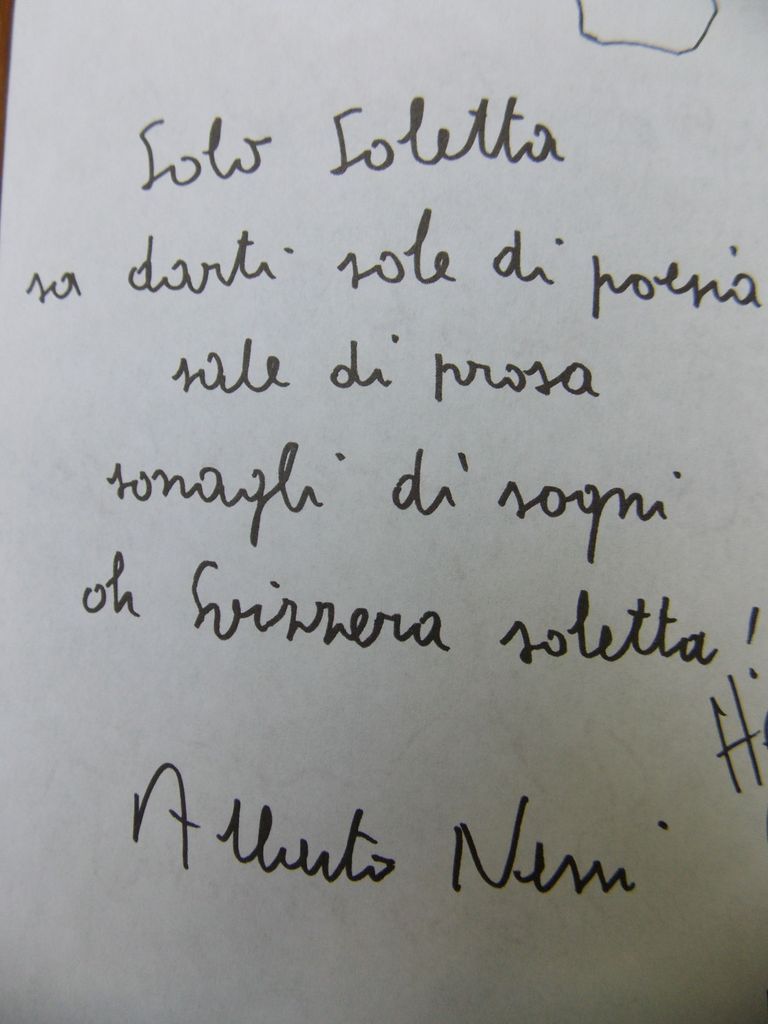 Solo Soletta
sa darti sole di poesia
sale di prosa
sonagli di sogni
oh Svizzera soletta!
Alberto Nessi